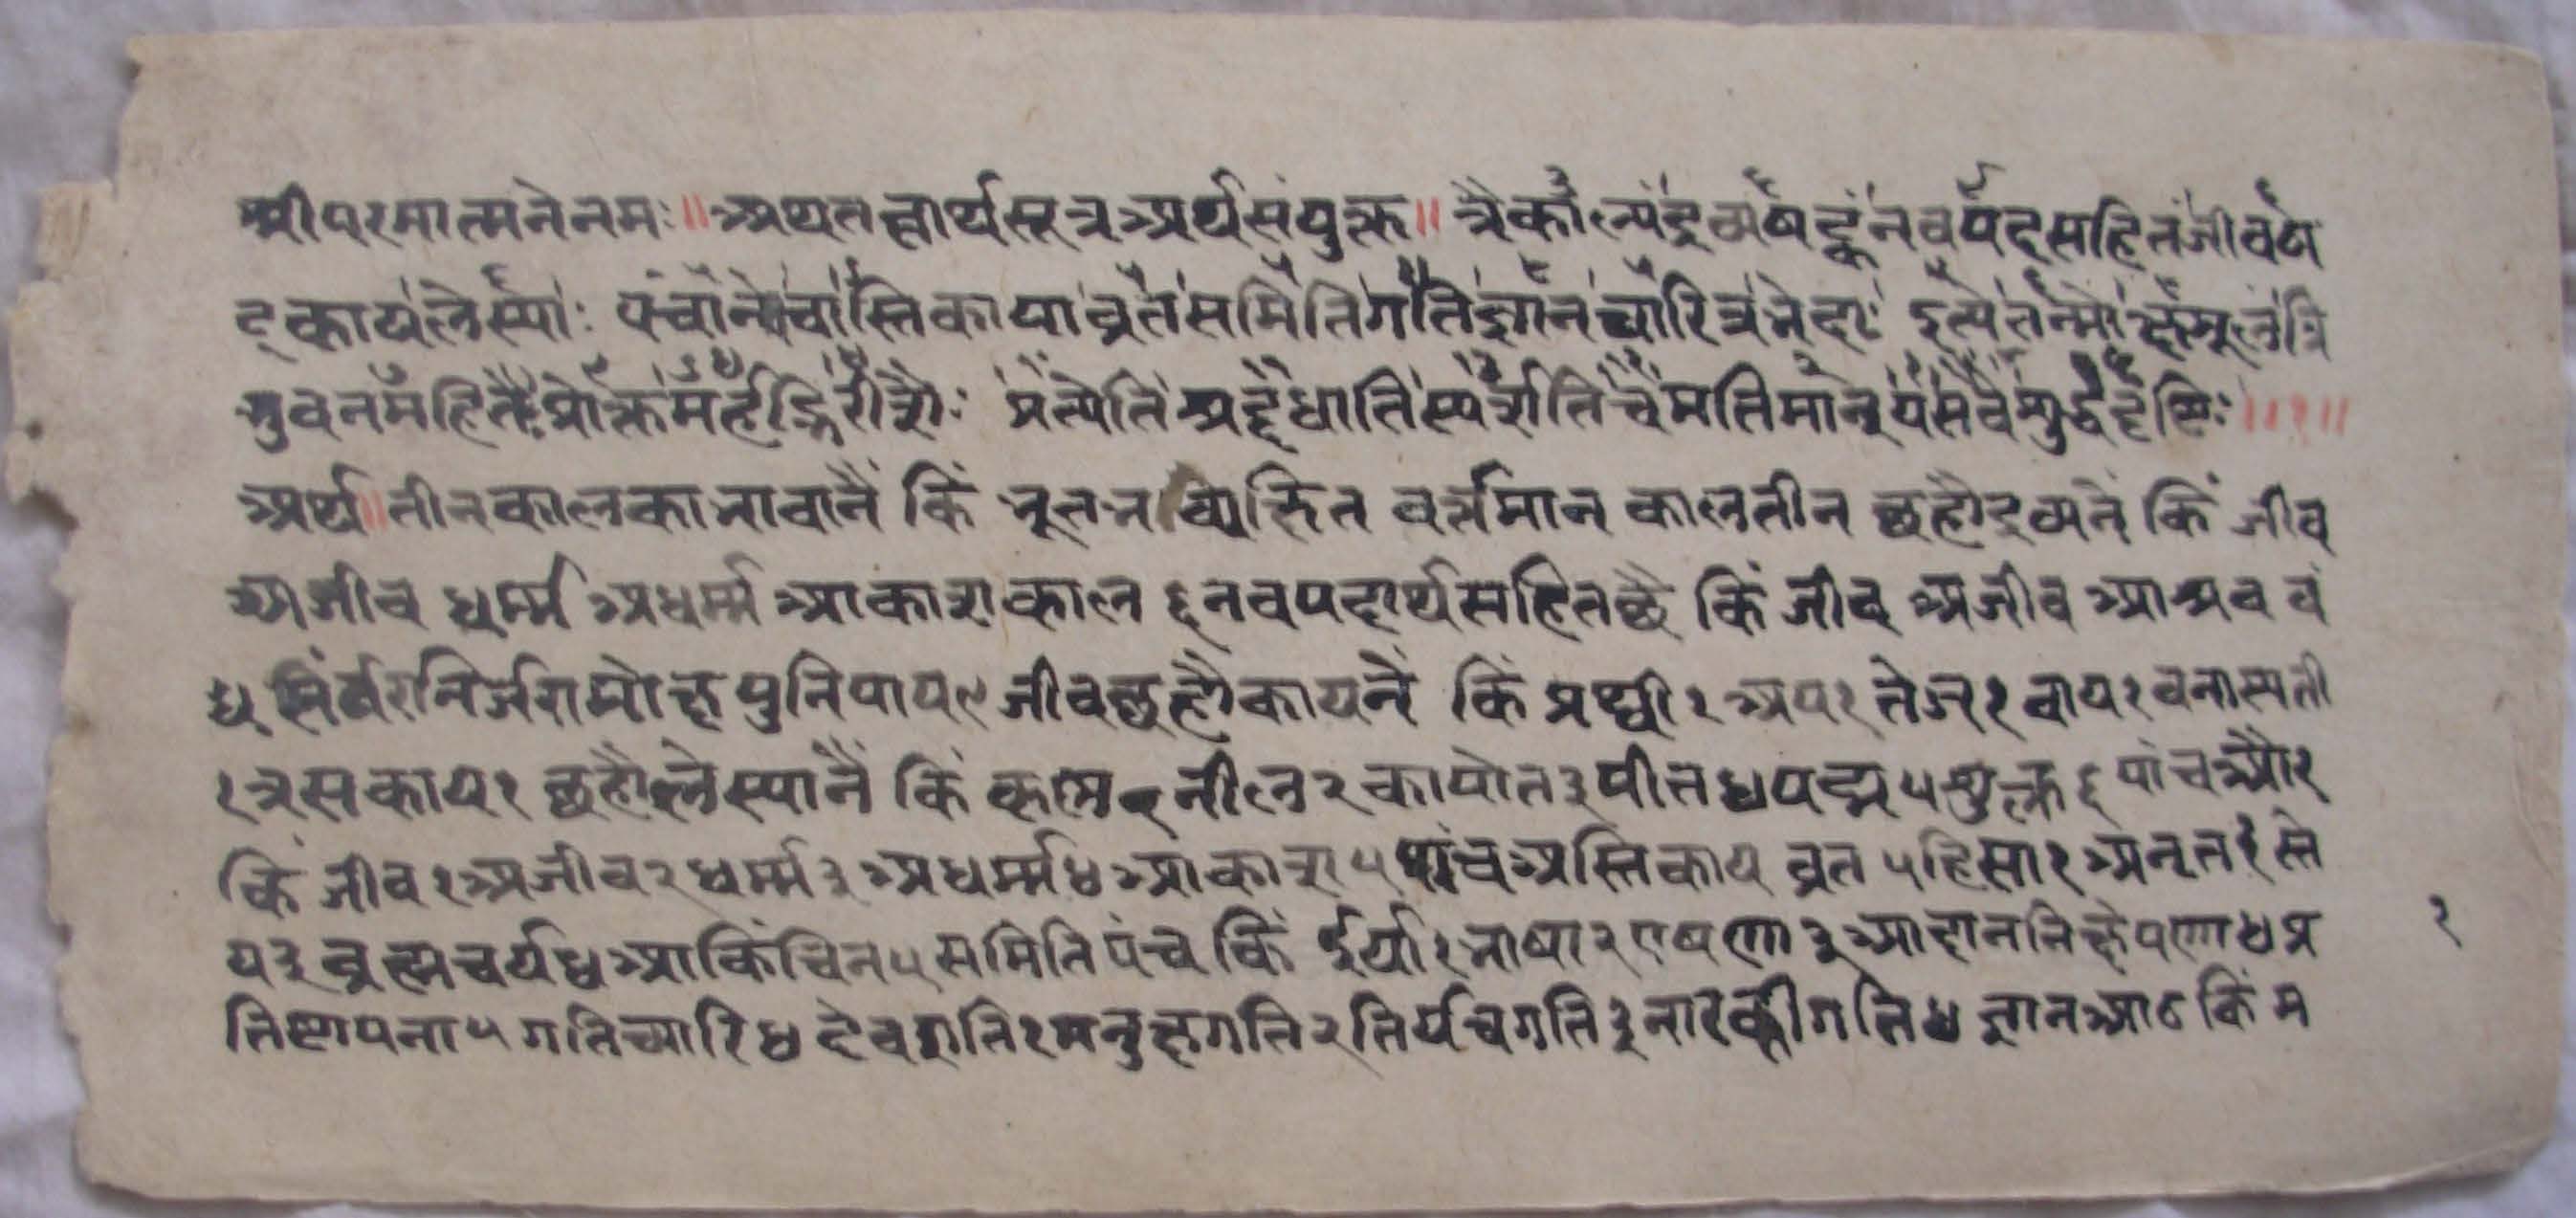 श्रीपरमात्मनेनमः॥अथतत्वार्थसूत्रअर्थसंयुक्त॥ त्रैकाल्यंद्रव्यषट्कंनवपदसहितंजीवष
ट्कायलेस्याः पंचान्येचास्तिकायाव्रतसमितिगतिज्ञानचारित्रभेदाः इत्येतन्मोक्षमूलंत्रि
भुवनमहितैःप्रोक्तमर्हद्भिरीशैः प्रत्येतिश्रद्दधातिस्पर्शतिचमतिमान्यःसवैशुद्धदृष्टिः॥१॥
अर्थ॥तीनकालकाभावानैं किं भूतभव्यक्षित वर्तमान कालतीन छहौद्रव्यनें किं जीव
अजीव धर्म्म अधर्म्म आकाशकाल ६नवपदार्थसहितछै किं जीव अजीव आश्रव वं
ध संवरनिर्जरामोक्षपुनिपाप९जीवछहौकायनें किं प्रथ्वी१अप१तेज१वाय१वनास्पती
१त्रसकाय१ छहौलेस्यानैं किं कृष्ण१नील२कापोत३पीत४पद्म५शुक्ल६पांचऔर
किं जीव१अजीव२धर्म्म३अधर्म्म४आकाश५पांचअस्तिकाय व्रत५हिंसा१अनृत२स्ते
य३ब्रह्मचर्य४आकिंचिन५समितिपंच किं ईर्या१भाषा२एषणा३आदाननिक्षेपणा४प्र
तिष्टापना५गतिच्यारि४देवगति१मनुक्षगति२तिर्यंचगति३नारकीगति४ज्ञानआठ किं म
१